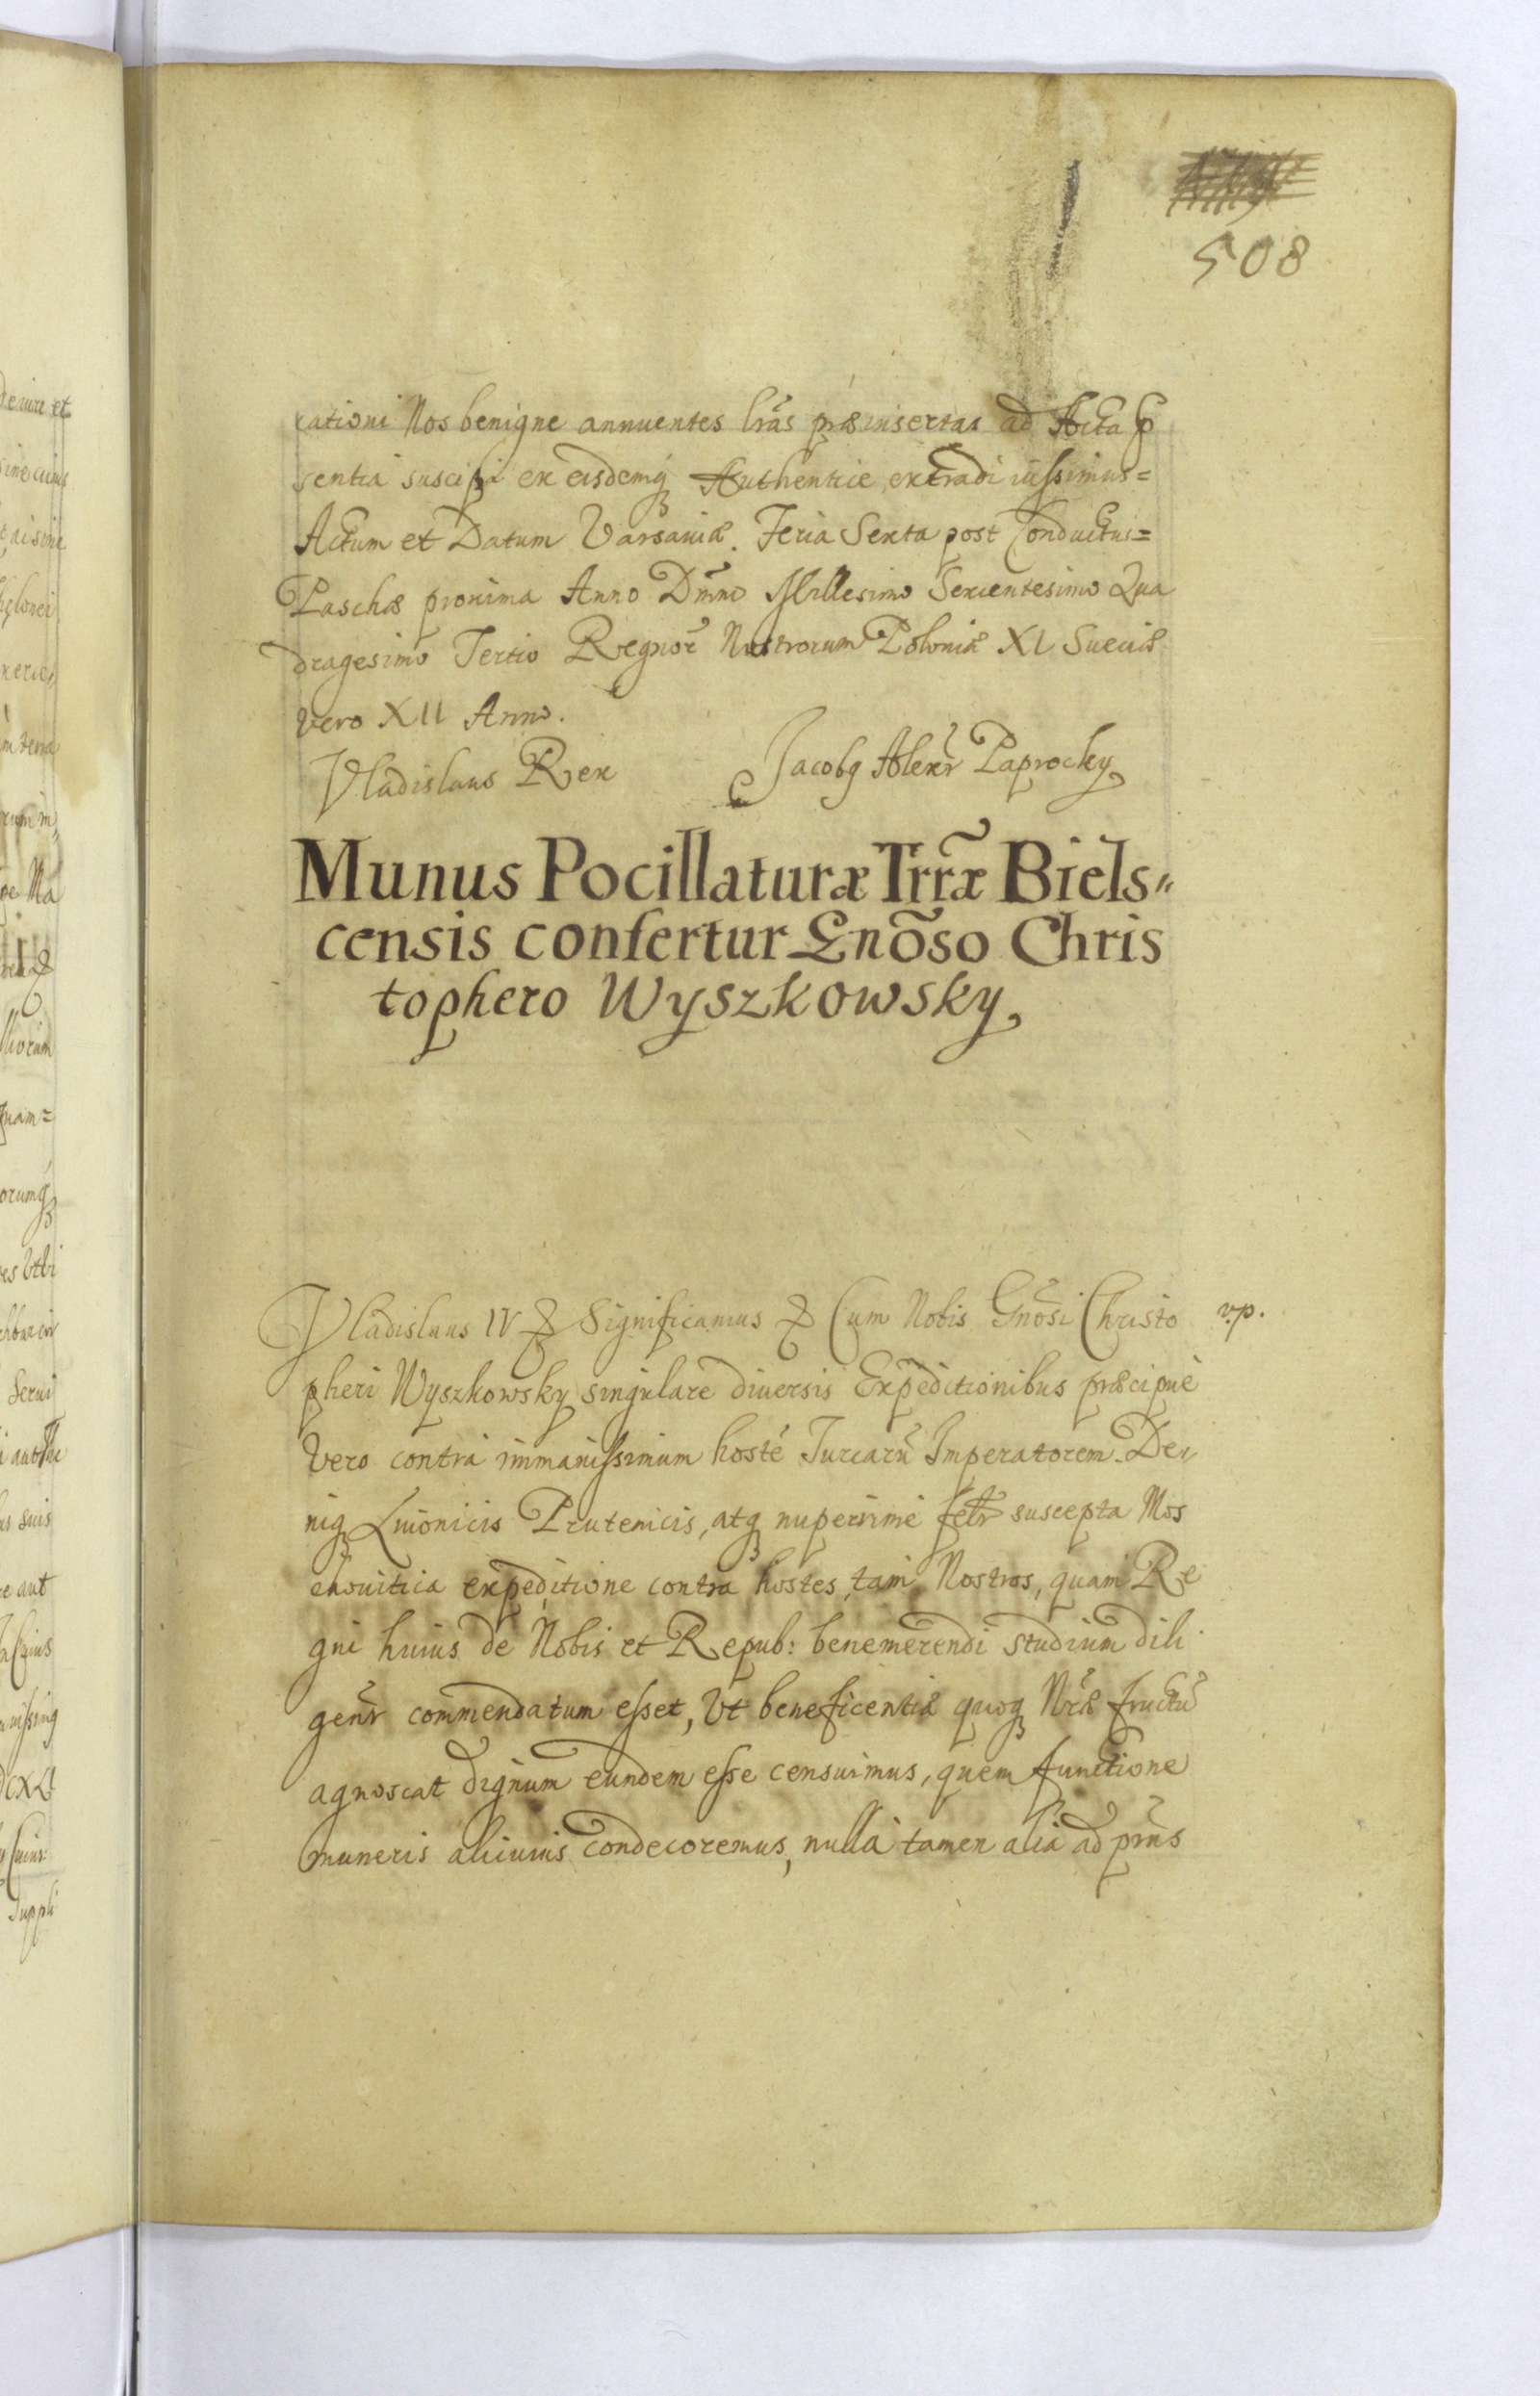 508
cationi Nos benigne annuentes lrãs præinsertas ad Acta p
sentia suscipi ex eisdemq Authentice extradi iussimus=
Actum et Datum Varsaviæ. Feria Sexta post Conductus=
Paschæ proxima Anno Dnni Millesimo Sexcentesimo Qua
dragesimo Tertio Regnor Nostrorum Poloniæ XI Sueciæ
vero XII Anno.
Vladislaus Rex Jacobg Alexr Paprocky
Munus Pocillaturæ Trræ̃ Biels"
censis confertur Gnõso Chris
tophero Wyszkowsky,
Vladislaus IV & Significamus & Cum Nobis Gnõsi Christo v.p.
pheri Wyszkowsky singulare diuersis Expeditionibus præcipue
Vero contra immanissimum hosté Turcarũ Imperatorem De,,
niq Liuonicis Prutenicis, atq nuperrime felr suscepta Mos
chouitica expeditione contra hostes, tam Nostros, quam Re
gni huius de Nobis et Repub: benemerendi studium dili
genr commendatum esset, Vt beneficentiæ quoq Nræ fructũ
agnoscat dignum eundem esse censuimus, quem functione
muneris alicuius condecoremus, nulla tamen alia ad prns